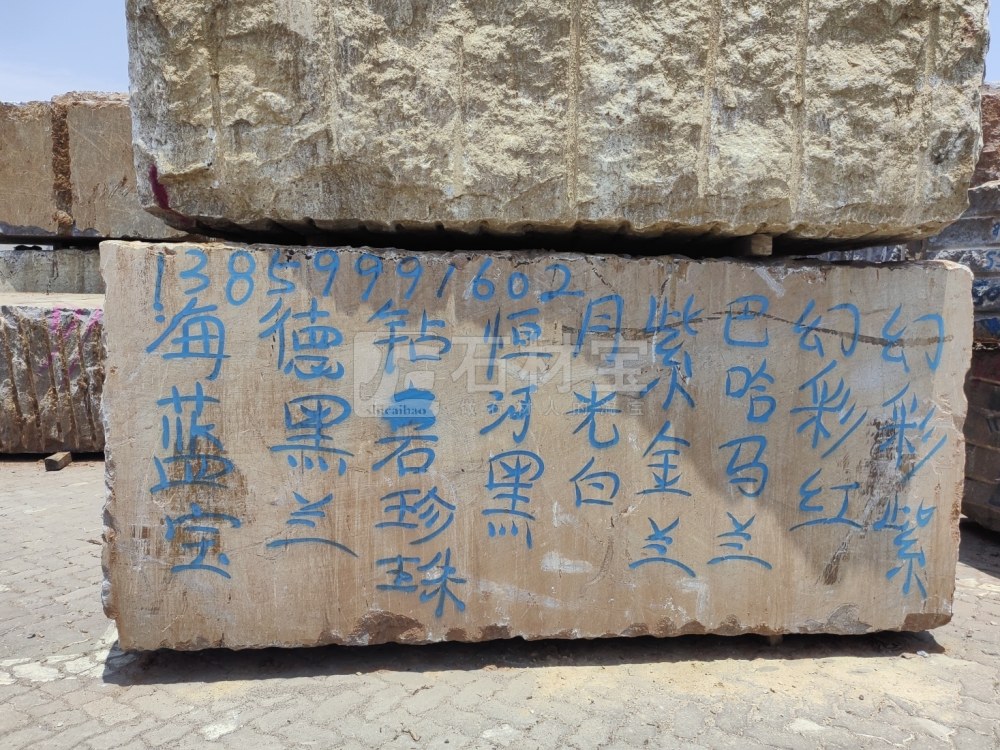 13859991602
海蓝宝
德黑兰
钻石珍珠
恒河黑
月光白
紫金兰
巴哈马兰
幻彩红
幻彩紫
石材宝
shicaibao